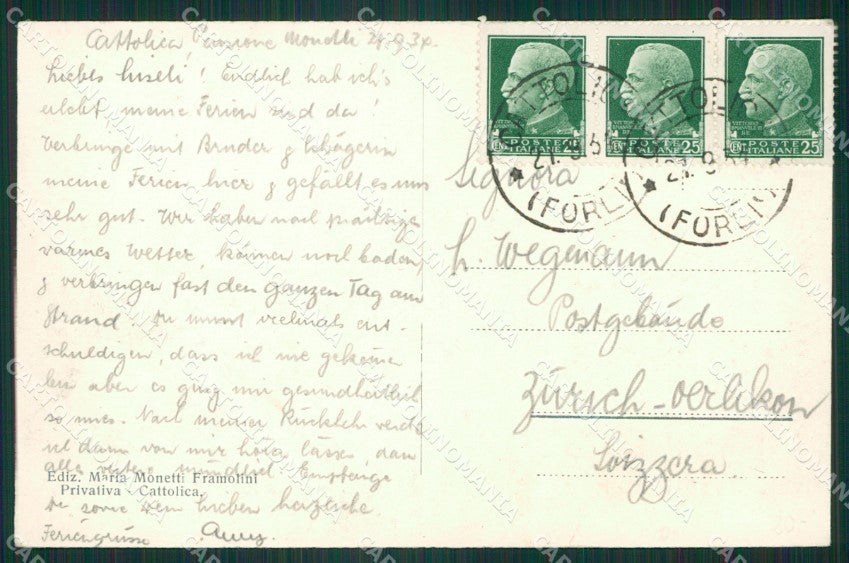 Cattolica, Pensione Monetti 21.9.34.
Liebes Luseli! Endlich hab ich's
erlebt meine Ferien sind da!
Verbringe mit Bruder & Schwägerin
meine Ferien hier & gefällt es uns
sehr gut. Wir haben noch prächtige
warmes Wetter, können noch baden,
& verbringen fast den ganzen Tag am
Strand. Du musst vielmals ent-
schuldigen, dass ich nie gekommen
bin aber es ging mir gesundheitlich
so mies. Nach meiner Rückkehr werde
ich dann von mir hören lassen, dann
alles weitere mündlich. Empfange
Du sowie Dein lieben herzliche
Feriengrüsse Anny.
Ediz. Maria Monetti Framolini
Privativa - Cattolica.
POSTE ITALIANE
CENT 25
POSTE ITALIANE
CENT 25
POSTE ITALIANE
CENT 25
CATTOLICA
21.9
(FORLI)
CATTOLICA
21.9
(FORLI)
Signora
L. Wegmann
Postgebäude
Zürich-Oerlikon
Svizzera
CARTOLINOMANIA